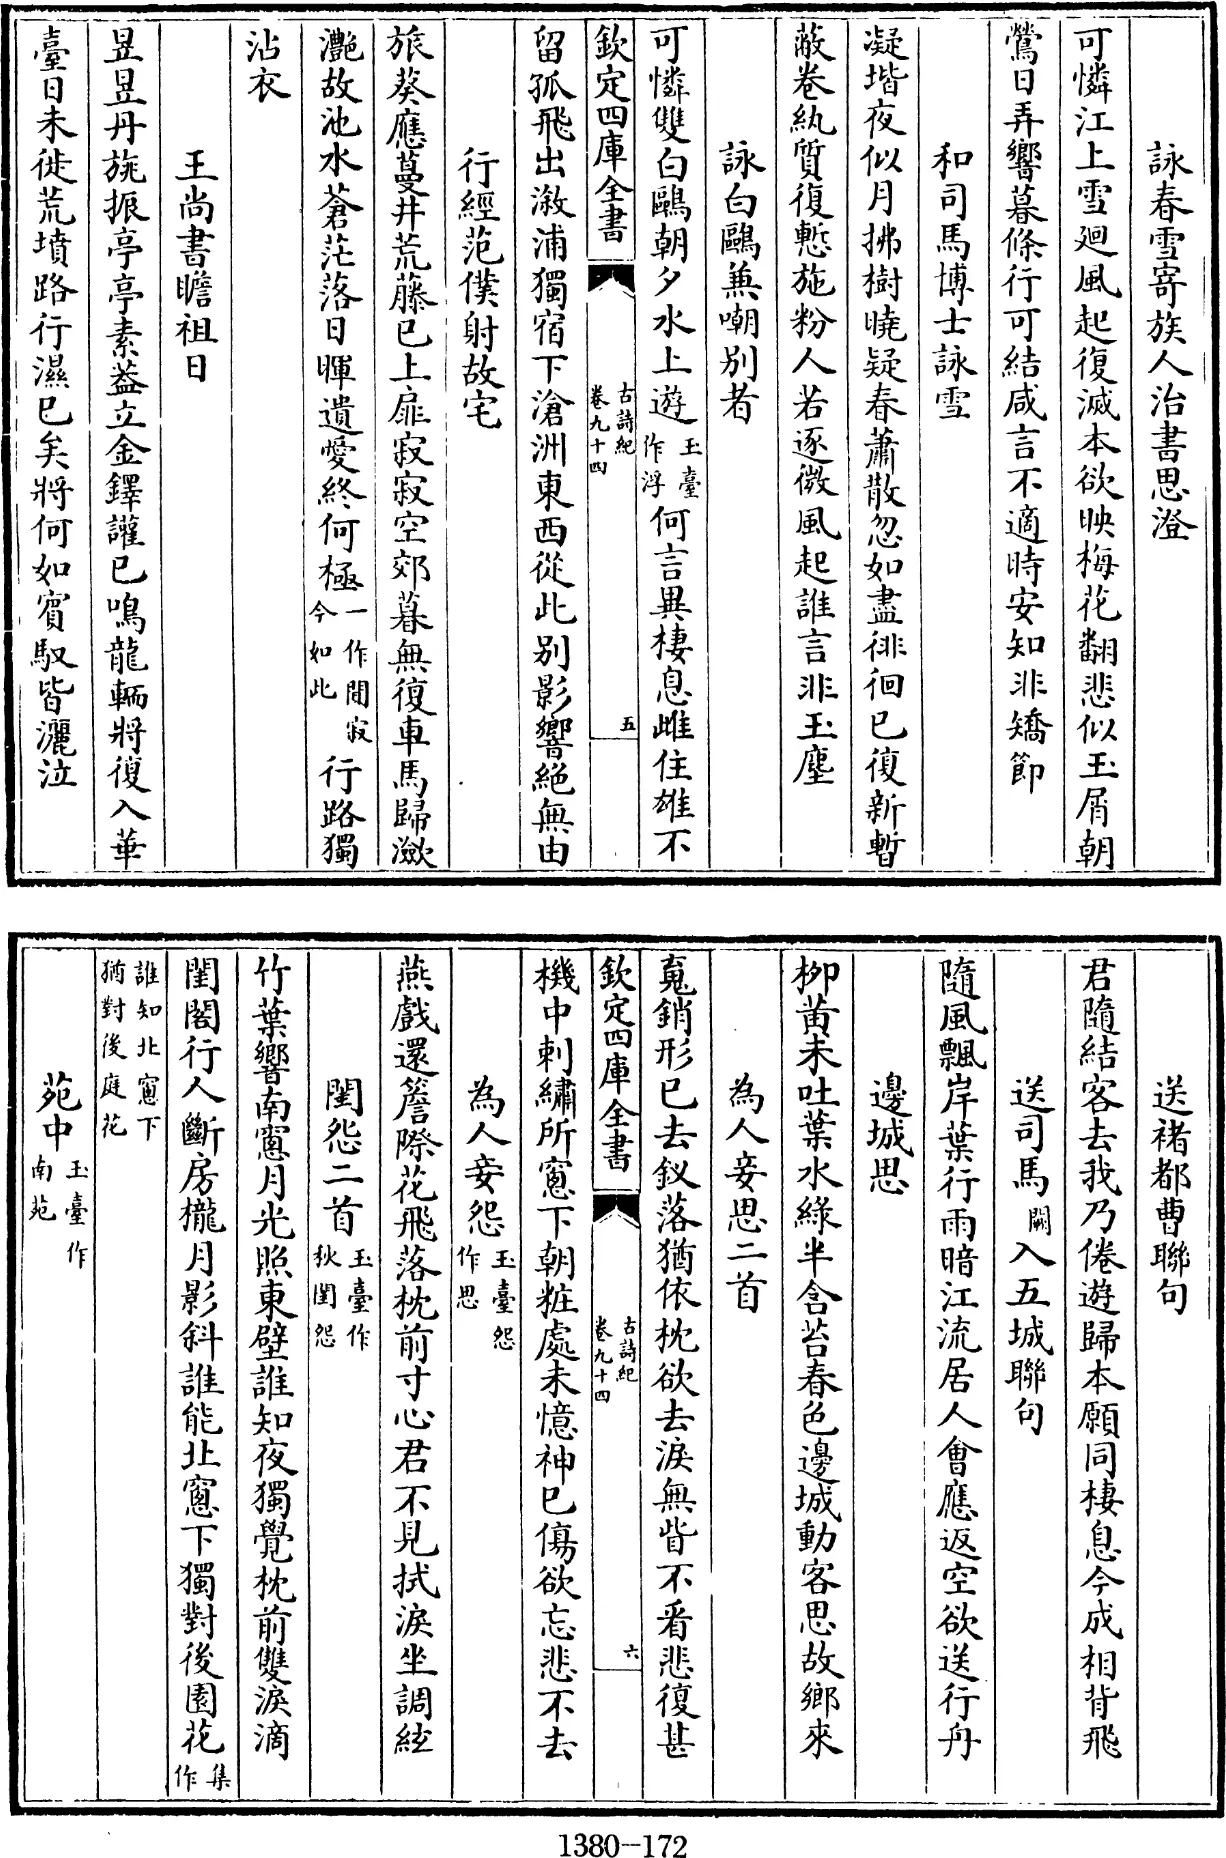 詠春雪寄族人治書思澄
可憐江上雪廻風起復滅本欲映梅花翻悲似玉屑朝
鶯日弄響暮條行可結咸言不適時安知非矯節
和司馬博士詠雪
凝堦夜似月拂樹曉疑春蕭散忽如盡徘徊已復新暫
蔽卷紈質復慙施粉人若逐微風起誰言非玉塵
詠白鷗兼嘲别者
可憐雙白鷗朝夕水上遊玉臺作浮何言異棲息雌住雄不
欽定四庫全書 古詩紀卷九十四 五
留孤飛出漵浦獨宿下滄洲東西從此别影響絶無由
行經范僕射故宅
旅葵應蔓井荒藤已上扉寂寂空郊暮無復車馬歸瀲
灔故池水蒼茫落日暉遺愛終何極一作閒寂今如此行路獨
沾衣
王尚書瞻祖日
昱昱丹旐振亭亭素葢立金鐸讙已鳴龍輀將復入華
臺日未徙荒墳路行濕已矣將何如賓馭皆灑泣
送褚都曹聯句
君隨結客去我乃倦遊歸本願同棲息今成相背飛
送司馬闕入五城聯句
隨風飄岸葉行雨暗江流居人會應返空欲送行舟
邊城思
柳黄未吐葉水綠半含苔春色邊城動客思故鄉來
為人妾思二首
魂銷形已去釵落猶依枕欲去淚無眥不看悲復甚
欽定四庫全書 古詩紀卷九十四 六
機中刺繡所窻下朝粧處未憶神已傷欲忘悲不去
為人妾怨玉臺怨作思
燕戲還簷際花飛落枕前寸心君不見拭淚坐調絃
閨怨二首玉臺作秋閨怨
竹葉響南窻月光照東壁誰知夜獨覺枕前雙淚滴
閨閤行人斷房櫳月影斜誰能北窻下獨對後園花集作
誰知北窻下猶對後庭花
苑中玉臺作南苑
1380—172